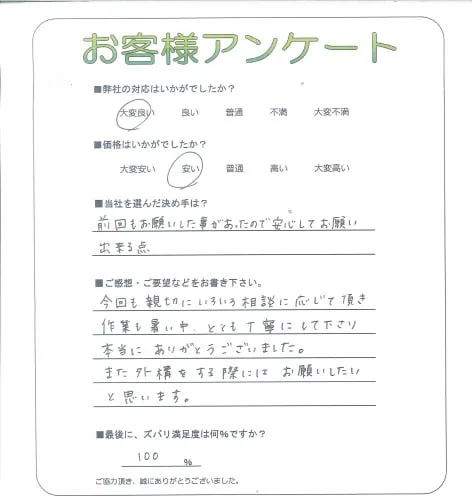 お客様アンケート
■弊社の対応はいかがでしたか？
大変良い 良い 普通 不満 大変不満
■価格はいかがでしたか？
大変安い 安い 普通 高い 大変高い
■当社を選んだ決め手は？
前回もお願いした事があったので安心してお願い
出来る点
■ご感想・ご要望などをお書き下さい。
今回も親切にいろいろ相談に応じて頂き
作業も暑い中、とても丁寧にして下さり
本当にありがとうございました。
また外構をする際にはお願いしたい
と思います。
■最後に、ズバリ満足度は何%ですか？
100 %
ご協力頂き、誠にありがとうございました。